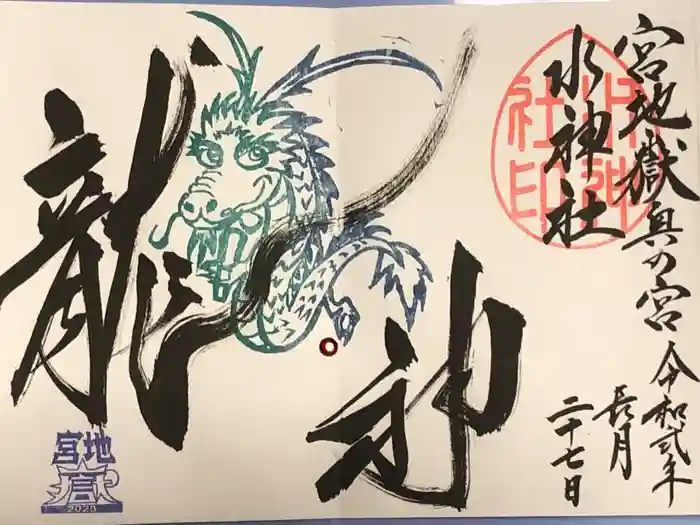 宮地嶽奥の宮
令和弐年
長月
二十七日
水神社
水神
社印
龍神
宮地
嶽
2020